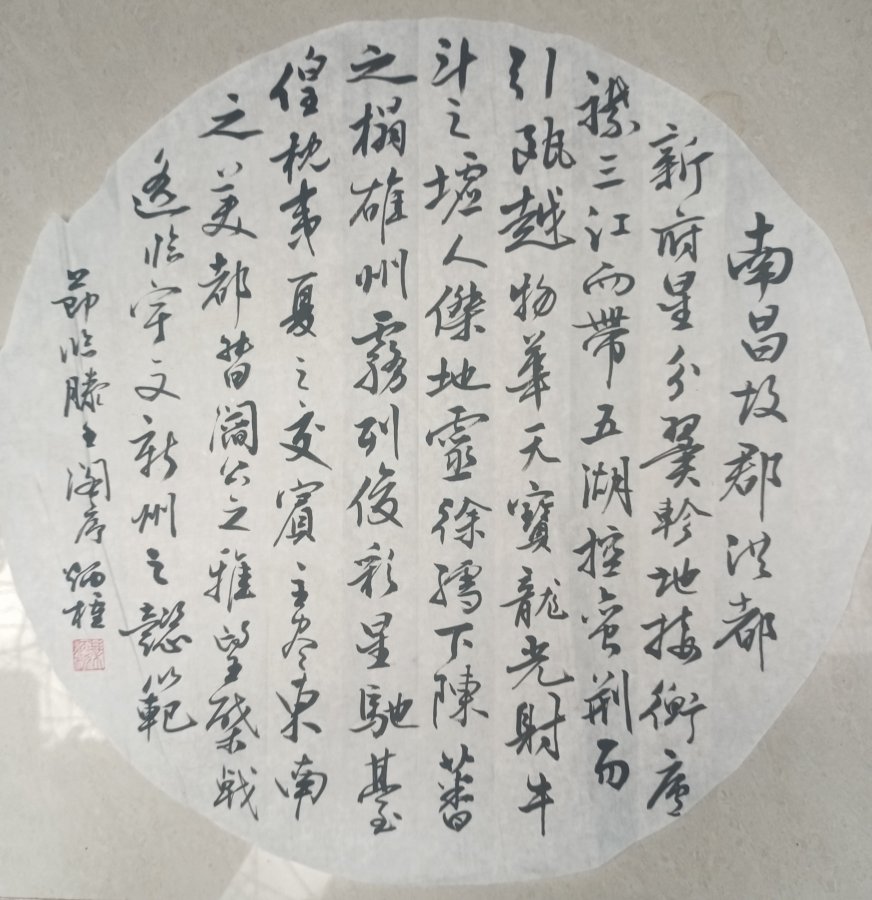 南昌故郡洪都
新府星分翼軫地接衡廬
襟三江而帶五湖控蛮荆而
引甌越物華天寶龍光射牛
斗之墟人傑地靈徐孺下陳蕃
之榻雄州霧列俊彩星馳臺
隍枕夷夏之交賓主尽東南
之美都督閻公之雅望棨戟
遙临宇文新州之懿範
節临滕王阁序炳